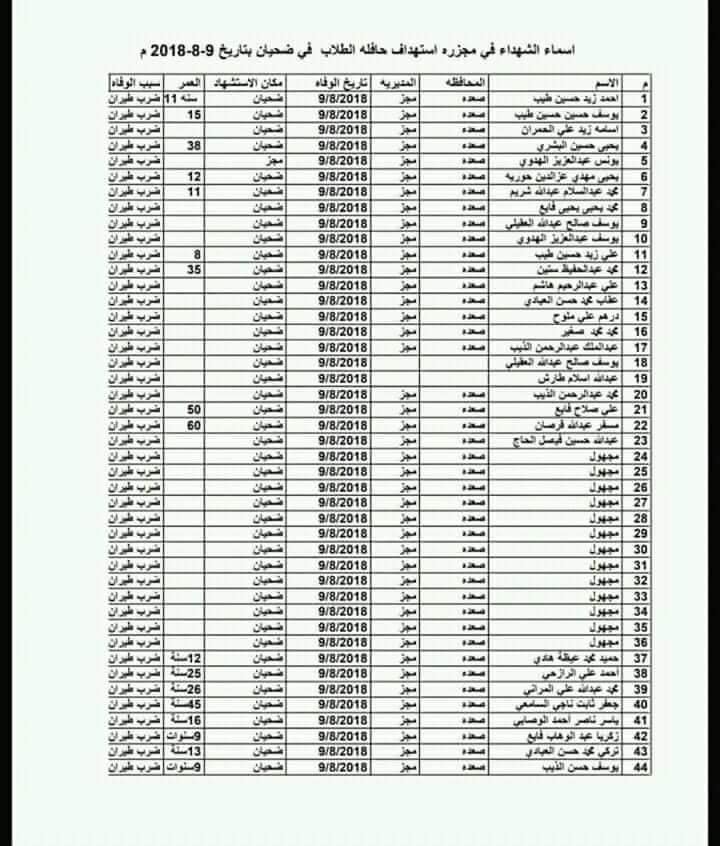 اسماء الشهداء في مجزره استهداف حافله الطلاب في ضحيان بتاريخ 9-8-2018 م
م الاسم المحافظه المديريه تاريخ الوفاه مكان الاستشهاد العمر سبب الوفاه
1 احمد زيد حسين طيب صعده مجز 9/8/2018 ضحيان 11 سنه ضرب طيران
2 يوسف حسين حسين طيب صعده مجز 9/8/2018 ضحيان 15 ضرب طيران
3 اسامه زيد علي الحمران صعده مجز 9/8/2018 ضحيان ضرب طيران
4 يحيى حسين البشري صعده مجز 9/8/2018 ضحيان 38 ضرب طيران
5 يونس عبدالعزيز الهدوي صعده مجز 9/8/2018 مجز ضرب طيران
6 يحيى مهدي عزالدين حوريه صعده مجز 9/8/2018 ضحيان 12 ضرب طيران
7 محمد عبدالسلام عبدالله شريم صعده مجز 9/8/2018 ضحيان 11 ضرب طيران
8 محمد يحيى يحيى فايع صعده مجز 9/8/2018 ضحيان ضرب طيران
9 يوسف صالح عبدالله العقيلي صعده مجز 9/8/2018 ضحيان ضرب طيران
10 يوسف عبدالعزيز الهدوي صعده مجز 9/8/2018 ضحيان ضرب طيران
11 علي زيد حسين طيب صعده مجز 9/8/2018 ضحيان 8 ضرب طيران
12 محمد عبدالحفيظ ستين صعده مجز 9/8/2018 ضحيان 35 ضرب طيران
13 علي عبدالرحيم هاشم صعده مجز 9/8/2018 ضحيان ضرب طيران
14 عقاب محمد حسن العبادي صعده مجز 9/8/2018 ضحيان ضرب طيران
15 درهم علي ملوح صعده مجز 9/8/2018 ضحيان ضرب طيران
16 محمد محمد صغير صعده مجز 9/8/2018 ضحيان ضرب طيران
17 عبدالملك عبدالرحمن الذيب صعده مجز 9/8/2018 ضحيان ضرب طيران
18 يوسف صالح عبدالله العقيلي 9/8/2018 ضحيان ضرب طيران
19 عبدالله اسلام طارش 9/8/2018 ضحيان ضرب طيران
20 محمد عبدالرحمن الذيب صعده مجز 9/8/2018 ضحيان ضرب طيران
21 علي صلاح فايع صعده مجز 9/8/2018 ضحيان 50 ضرب طيران
22 مسفر عبدالله قرصان صعده مجز 9/8/2018 ضحيان 60 ضرب طيران
23 عبدالله حسين فيصل الحاج صعده مجز 9/8/2018 ضحيان ضرب طيران
24 مجهول صعده مجز 9/8/2018 ضحيان ضرب طيران
25 مجهول صعده مجز 9/8/2018 ضحيان ضرب طيران
26 مجهول صعده مجز 9/8/2018 ضحيان ضرب طيران
27 مجهول صعده مجز 9/8/2018 ضحيان ضرب طيران
28 مجهول صعده مجز 9/8/2018 ضحيان ضرب طيران
29 مجهول صعده مجز 9/8/2018 ضحيان ضرب طيران
30 مجهول صعده مجز 9/8/2018 ضحيان ضرب طيران
31 مجهول صعده مجز 9/8/2018 ضحيان ضرب طيران
32 مجهول صعده مجز 9/8/2018 ضحيان ضرب طيران
33 مجهول صعده مجز 9/8/2018 ضحيان ضرب طيران
34 مجهول صعده مجز 9/8/2018 ضحيان ضرب طيران
35 مجهول صعده مجز 9/8/2018 ضحيان ضرب طيران
36 مجهول صعده مجز 9/8/2018 ضحيان ضرب طيران
37 حميد محمد عيظة هادي صعده مجز 9/8/2018 ضحيان 12سنة ضرب طيران
38 أحمد علي الرازحي صعده مجز 9/8/2018 ضحيان 25سنة ضرب طيران
39 محمد عبدالله علي المراني صعده مجز 9/8/2018 ضحيان 26سنة ضرب طيران
40 جعفر ثابت ناجي السامعي صعده مجز 9/8/2018 ضحيان 45سنة ضرب طيران
41 ياسر ناصر أحمد الوصابي صعده مجز 9/8/2018 ضحيان 16سنة ضرب طيران
42 زكريا عبد الوهاب فايع صعده مجز 9/8/2018 ضحيان 9سنوات ضرب طيران
43 تركي محمد حسن العبادي صعده مجز 9/8/2018 ضحيان 13سنة ضرب طيران
44 يوسف حسن الذيب صعده مجز 9/8/2018 ضحيان 9سنوات ضرب طيران